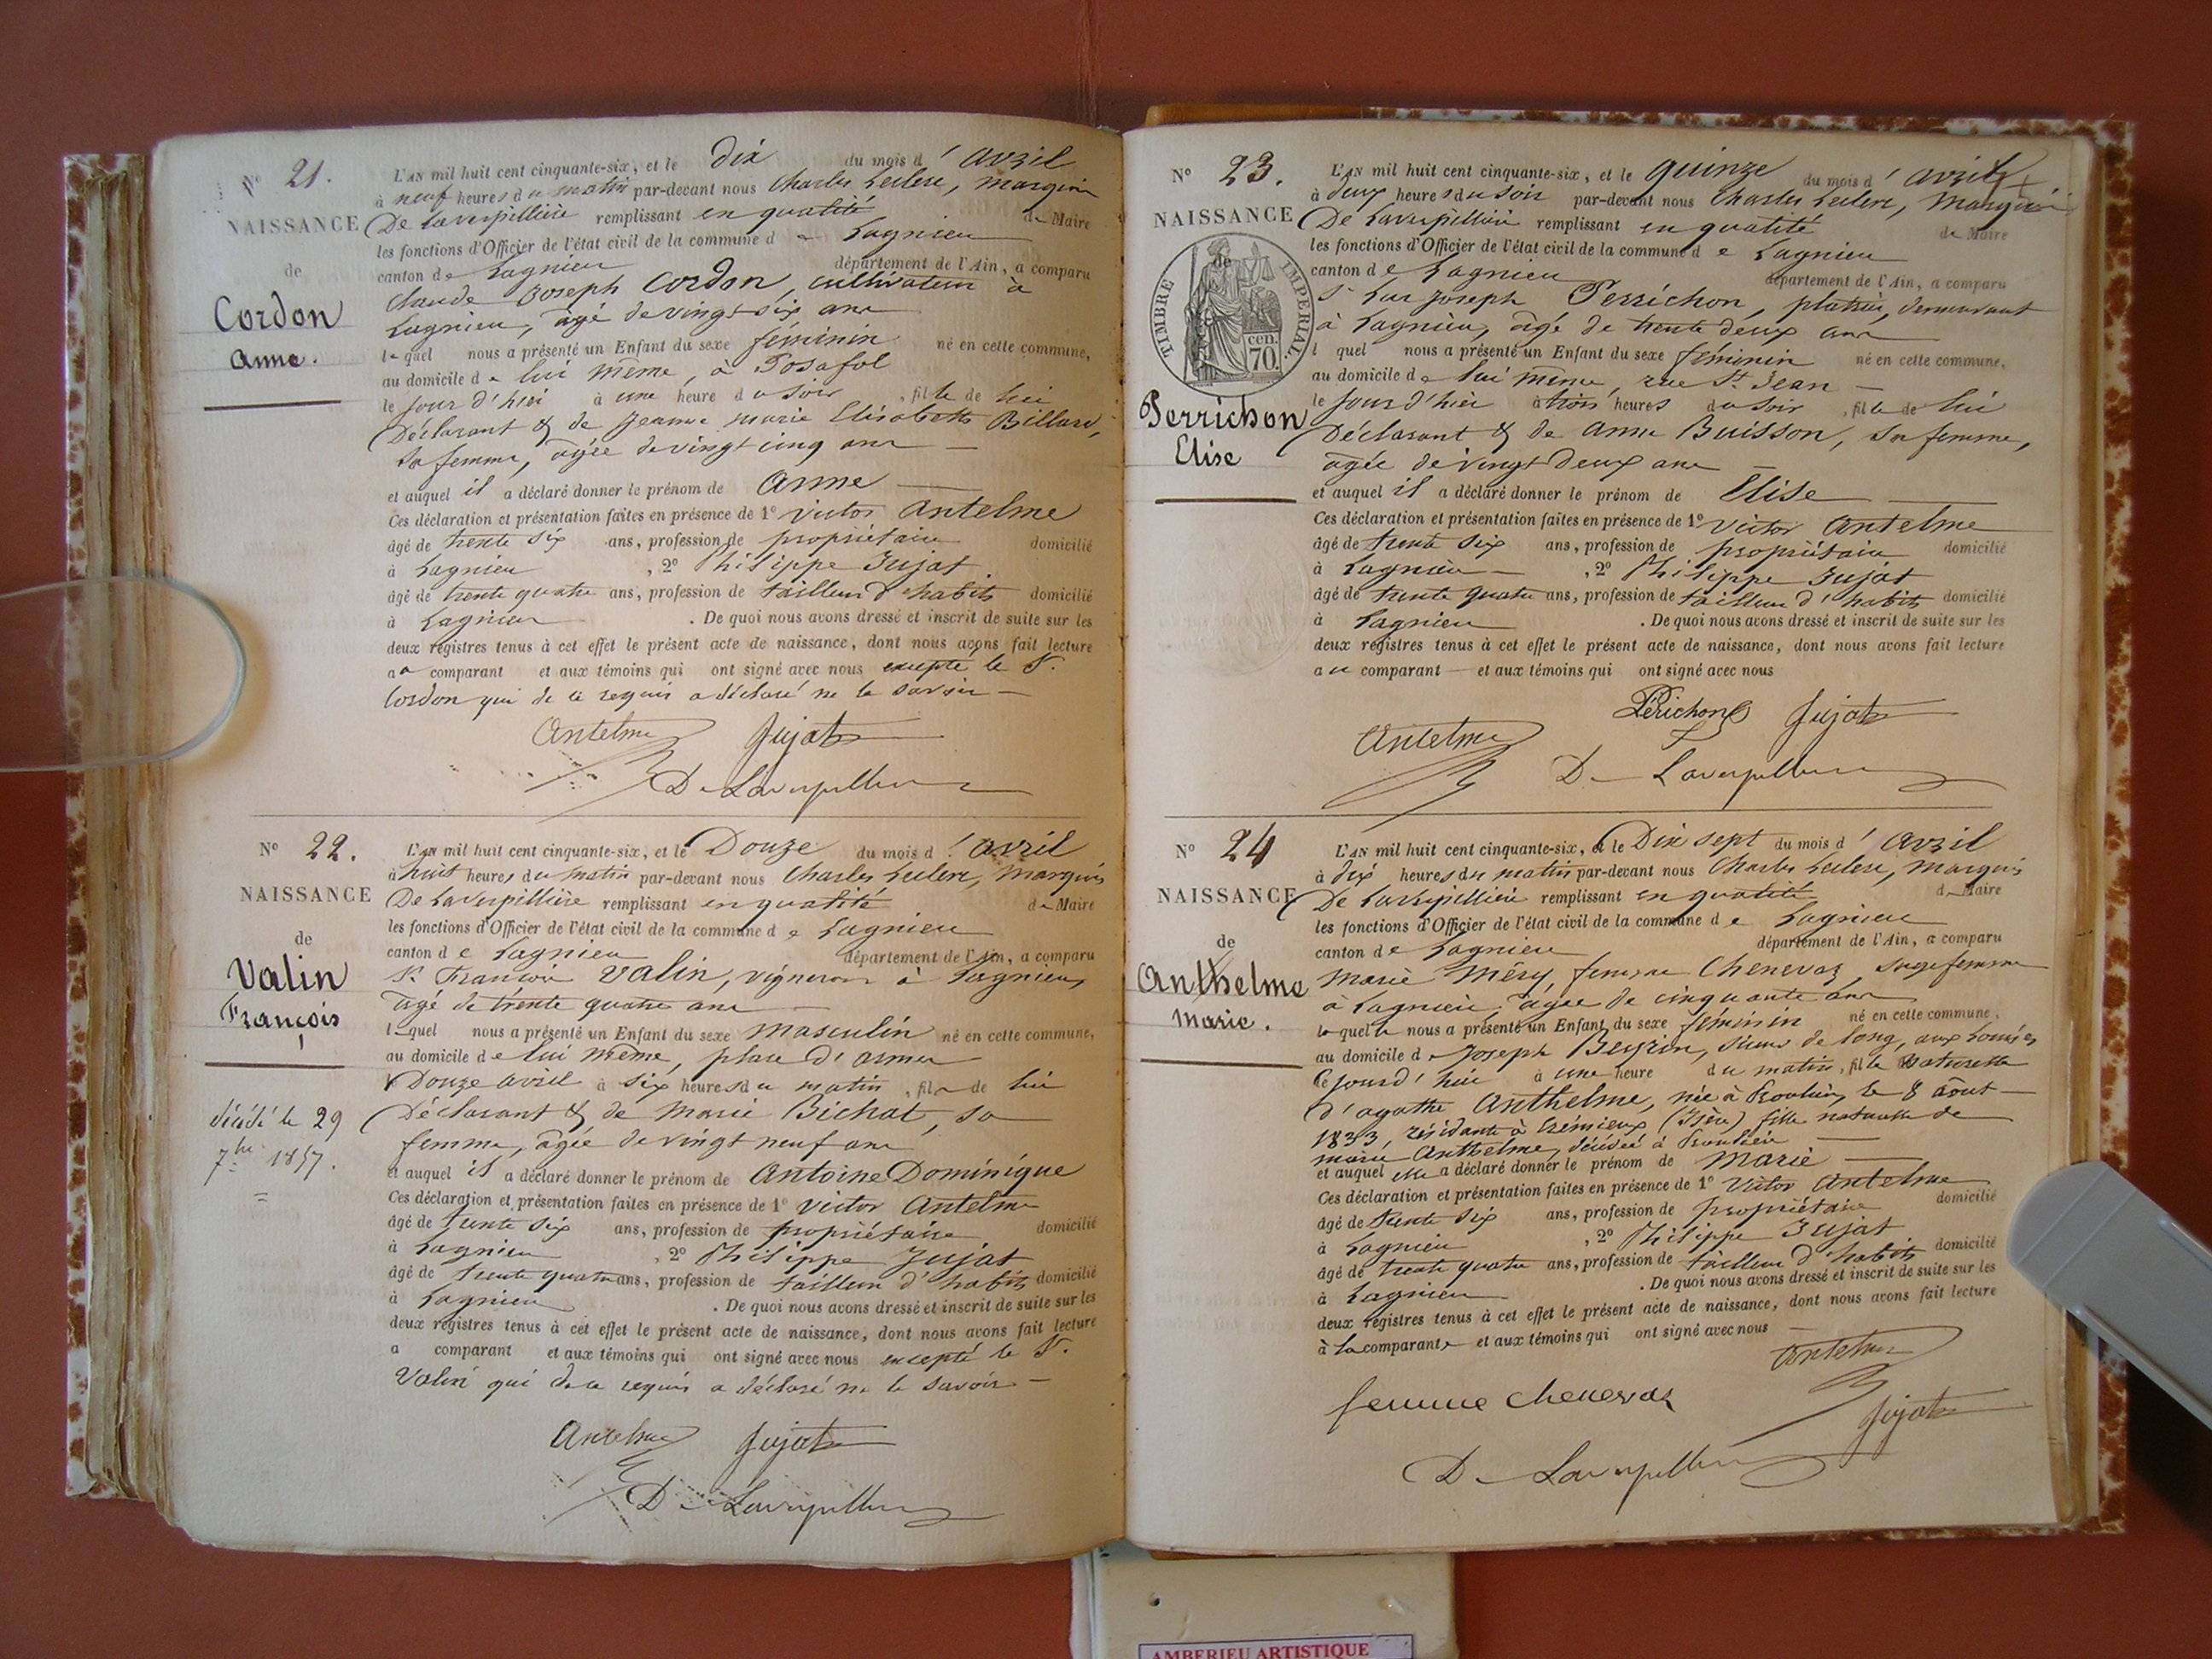 N° 21.
NAISSANCE
de
Cordon
Anne.
L'AN mil huit cent cinquante-six, et le dix du mois d'avril
à neuf heures du matin par-devant nous Charles Leclerc, Marquis
De Laverpillière remplissant en qualité de Maire
les fonctions d'Officier de l'état civil de la commune de Lagnieu
canton de Lagnieu département de l'Ain, a comparu
Claude Joseph Cordon, cultivateur à
Lagnieu, âgé de vingt six ans
lequel nous a présenté un Enfant du sexe féminin né en cette commune,
au domicile de lui même, à Posafol
le jour d'hier à une heure du soir, fille de lui
Déclarant & de Jeanne Marie Elisabeth Billard,
sa femme, âgée de vingt cinq ans
et auquel il a déclaré donner le prénom de Anne
Ces déclaration et présentation faites en présence de 1° Victor Antelme
âgé de trente six ans, profession de propriétaire domicilié
à Lagnieu, 2° Philippe Jujat
âgé de trente quatre ans, profession de tailleur d'habits domicilié
à Lagnieu. De quoi nous avons dressé et inscrit de suite sur les
deux registres tenus à cet effet le présent acte de naissance, dont nous avons fait lecture
au comparant et aux témoins qui ont signé avec nous excepté le S.
Cordon qui de ce requis a déclaré ne le savoir
Antelme Jujat
De Laverpilliere
N° 22.
NAISSANCE
de
Valin
François
décédé le 29
7bre 1857.
L'AN mil huit cent cinquante-six, et le Douze du mois d'avril
à huit heures du matin par-devant nous Charles Leclerc, Marquis
De Laverpillière remplissant en qualité de Maire
les fonctions d'Officier de l'état civil de la commune de Lagnieu
canton de Lagnieu département de l'Ain, a comparu
Sr. François Valin, vigneron à Lagnieu,
âgé de trente quatre ans
lequel nous a présenté un Enfant du sexe masculin né en cette commune,
au domicile de lui même, place d'armes
Douze avril à six heures du matin, fils de lui
Déclarant & de Marie Bichat, sa
femme, âgée de vingt neuf ans
et auquel il a déclaré donner le prénom de Antoine Dominique
Ces déclaration et présentation faites en présence de 1° Victor Antelme
âgé de trente six ans, profession de propriétaire domicilié
à Lagnieu, 2° Philippe Jujat
âgé de trente quatre ans, profession de tailleur d'habits domicilié
à Lagnieu. De quoi nous avons dressé et inscrit de suite sur les
deux registres tenus à cet effet le présent acte de naissance, dont nous avons fait lecture
a comparant et aux témoins qui ont signé avec nous excepté le S.
Valin qui de ce requis a déclaré ne le savoir
Antelme Jujat
De Laverpilliere
N° 23.
NAISSANCE
de
TIMBRE IMPERIAL
70 cen.
Perrichon
Elise
L'AN mil huit cent cinquante-six, et le quinze du mois d'avril
à deux heures du soir par-devant nous Charles Leclerc, Marquis
De Laverpillière remplissant en qualité de Maire
les fonctions d'Officier de l'état civil de la commune de Lagnieu
canton de Lagnieu département de l'Ain, a comparu
Sr Joseph Perrichon, platrier, demeurant
à Lagnieu, âgé de trente deux ans
l quel nous a présenté un Enfant du sexe féminin né en cette commune,
au domicile de lui même, rue St. Jean
le jour d'hier à trois heures du soir, fille de lui
Déclarant & de Anne Buisson, sa femme,
âgée de vingt deux ans
et auquel il a déclaré donner le prénom de Elise
Ces déclaration et présentation faites en présence de 1° Victor Antelme
âgé de trente six ans, profession de propriétaire domicilié
à Lagnieu, 2° Philippe Jujat
âgé de trente quatre ans, profession de tailleur d'habits domicilié
à Lagnieu. De quoi nous avons dressé et inscrit de suite sur les
deux registres tenus à cet effet le présent acte de naissance, dont nous avons fait lecture
au comparant et aux témoins qui ont signé avec nous
Périchon Jujat
Antelme
De Laverpilliere
N° 24
NAISSANCE
de
Anthelme
Marie.
L'AN mil huit cent cinquante-six, et le Dix sept du mois d'avril
à dix heures du matin par-devant nous Charles Leclerc, Marquis
De Laverpillière remplissant en qualité de Maire
les fonctions d'Officier de l'état civil de la commune de Lagnieu
canton de Lagnieu département de l'Ain, a comparu
Marie Méry femme Chenevaz, sage femme
à Lagnieu, âgée de cinquante ans
laquelle nous a présenté un Enfant du sexe féminin né en cette commune,
au domicile de Joseph scieur de long, aux
le jour d'hier à une heure du matin, fille naturelle
d'agathe Anthelme, née à le 8 août
1833, résidante à Crémieux (Isère) fille naturelle de
marie Anthelme, décédée à
et auquel elle a déclaré donner le prénom de Marie
Ces déclaration et présentation faites en présence de 1° Victor Antelme
âgé de trente six ans, profession de propriétaire domicilié
à Lagnieu, 2° Philippe Jujat
âgé de trente quatre ans, profession de tailleur d'habits domicilié
à Lagnieu. De quoi nous avons dressé et inscrit de suite sur les
deux registres tenus à cet effet le présent acte de naissance, dont nous avons fait lecture
à la comparante et aux témoins qui ont signé avec nous
Antelme
femme chenevaz
Jujat
De Laverpilliere
AMBERIEU ARTISTIQUE